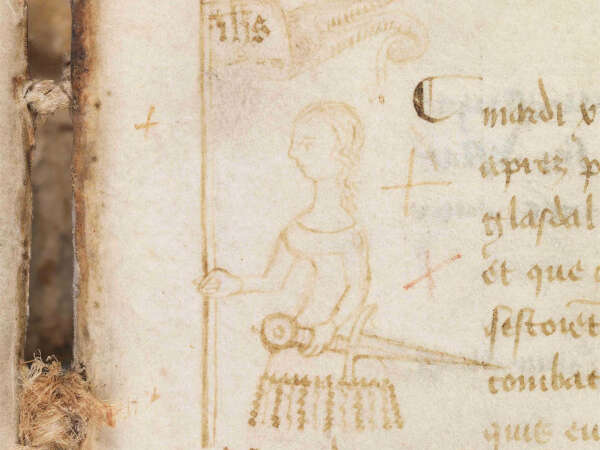 ihs
mardi
apres p
glasdal
et que
sestoiet
combat
quis eu